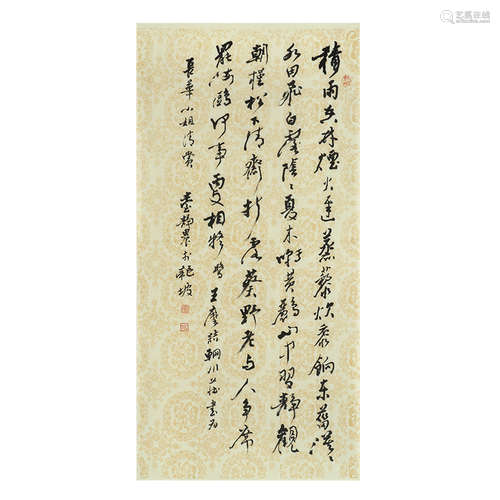 艺典在线
積雨空林煙火遲蒸藜炊黍餉東菑漠〻
水田飛白鷺陰〻夏木囀黃鸝山中習靜觀
朝槿松下清齋折露葵野老与人爭席
罷海鷗何事更相疑 王摩詰輞川作書為
長華小姐清賞 臺靜農於龍坡